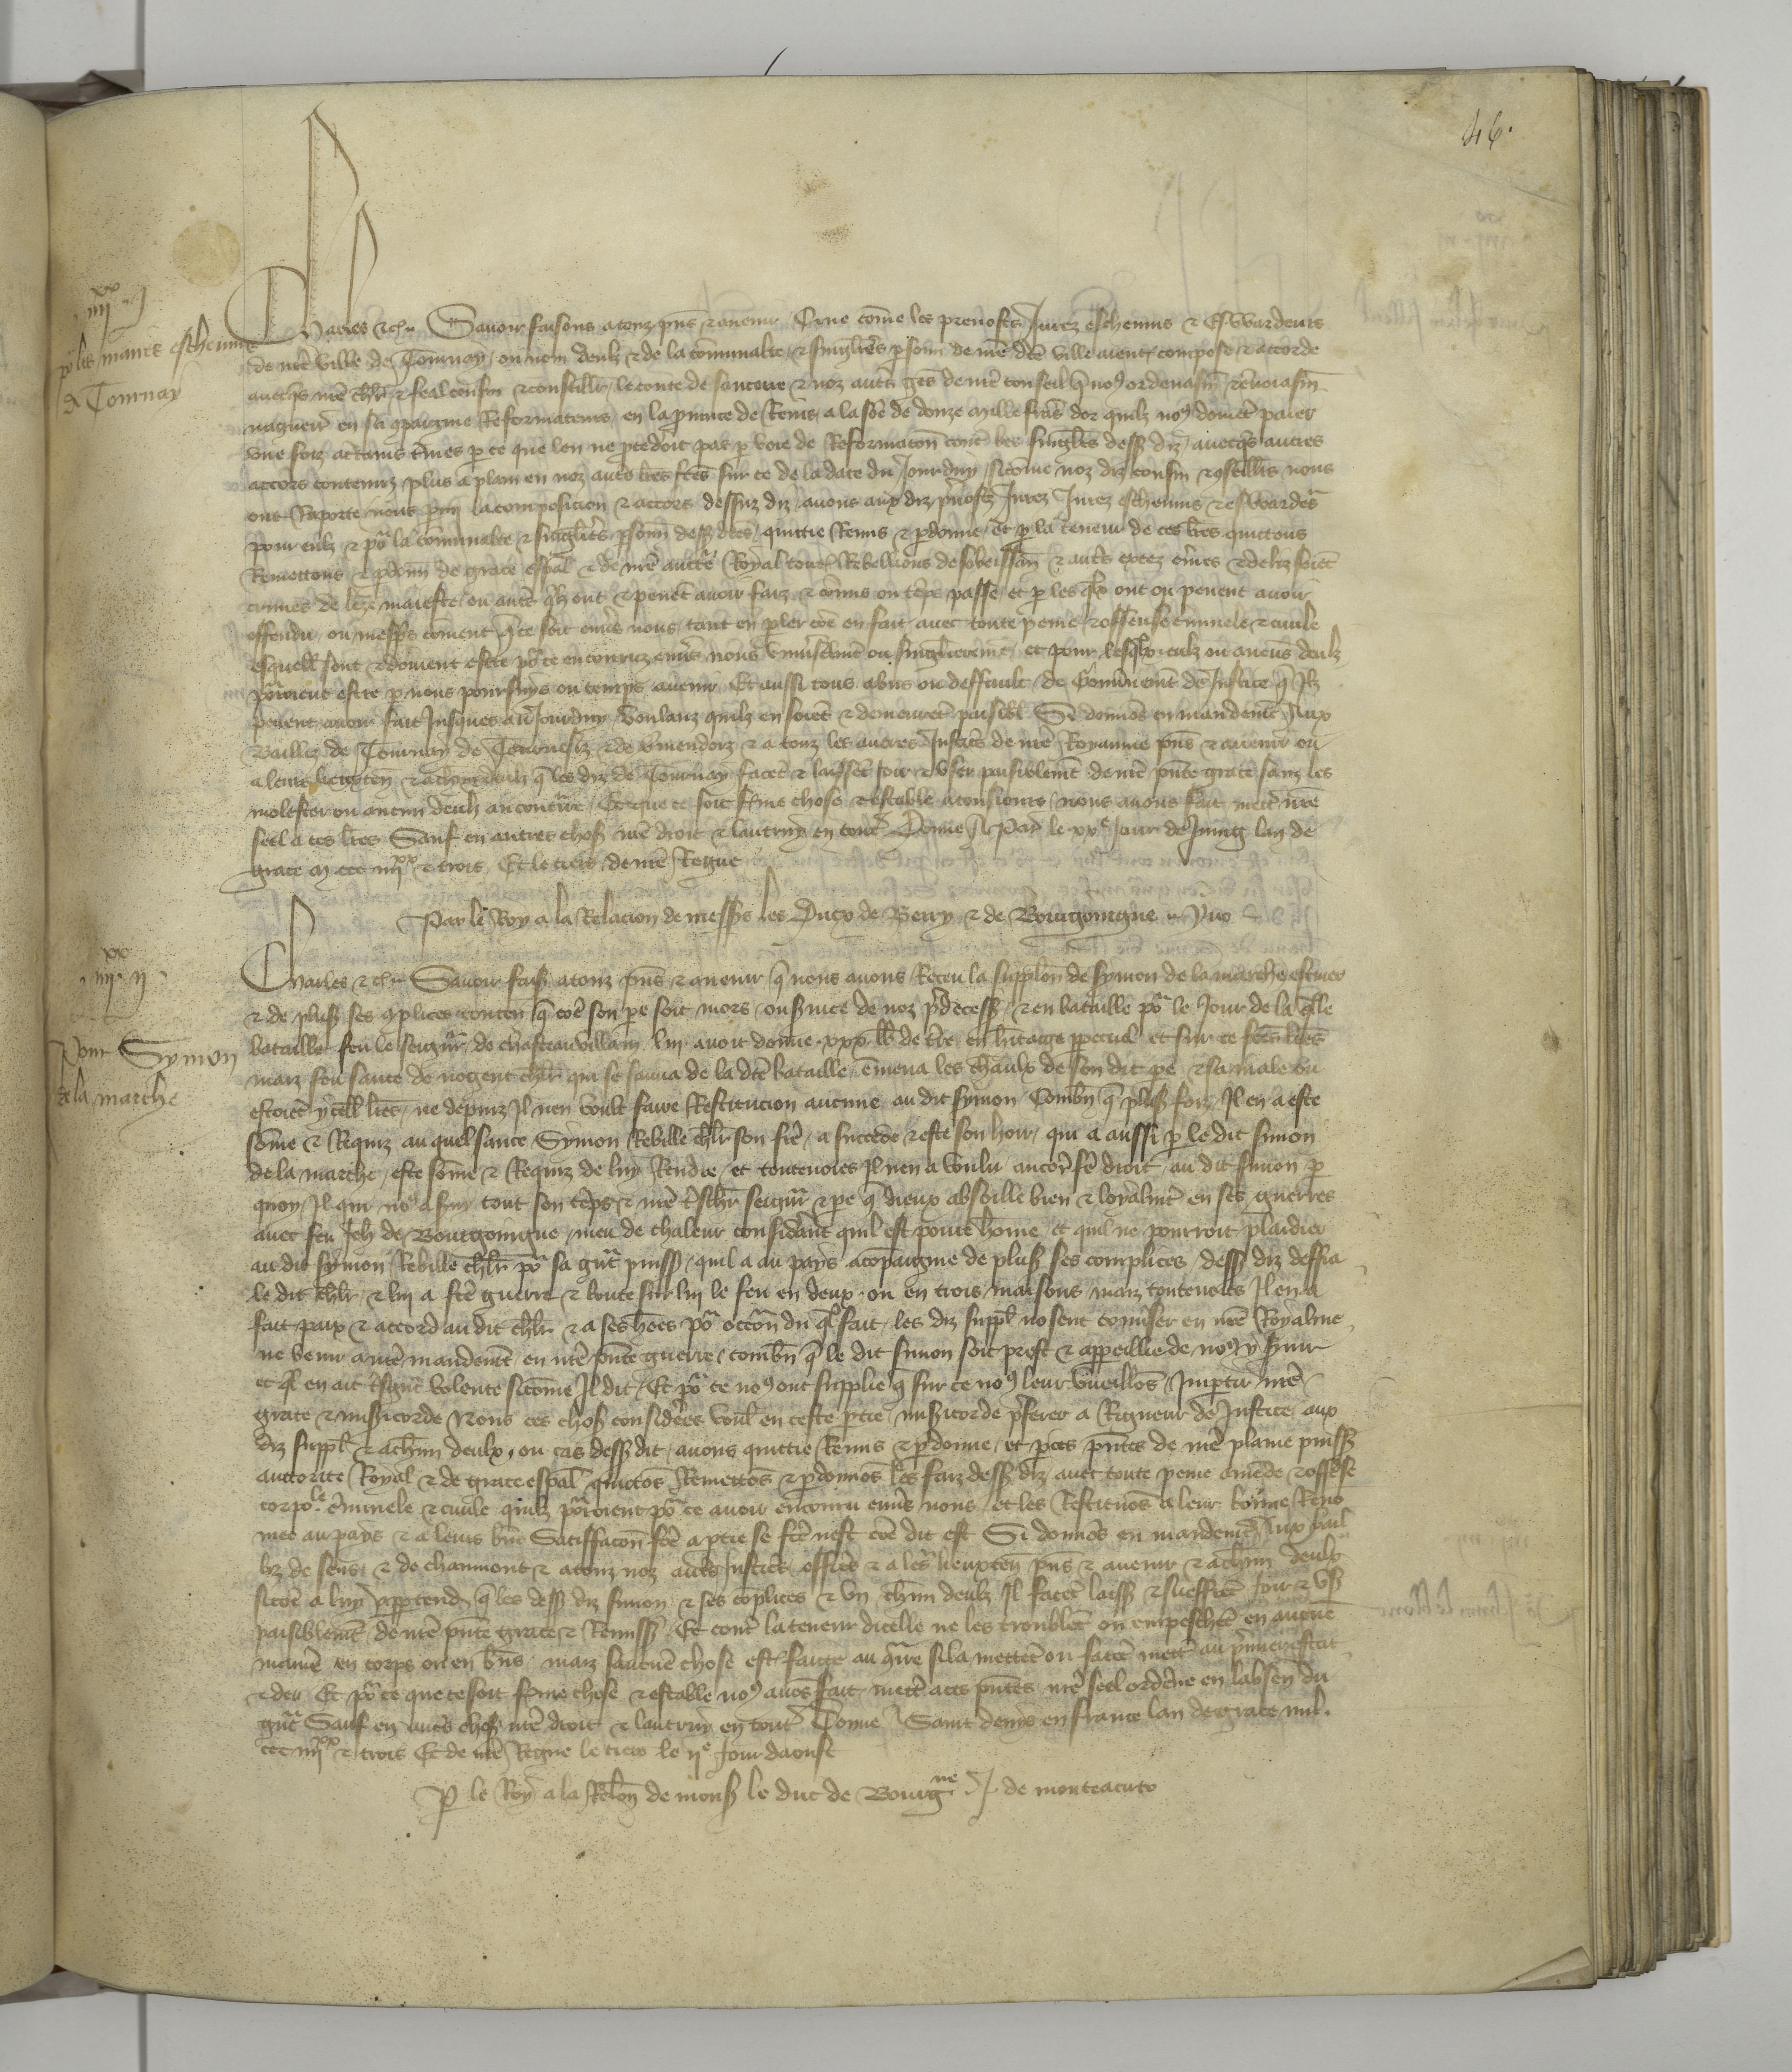 46.
.iiii.xx .i.
po' les maires eschevins
de Tournay
Charles etc. Savoir faisons a touz pns et avenir Que come les prevosts Jurez eschevins et Eswardeurs
de nre ville de Tournay, ou nom deulz et de la comunalte et singulers psonn de nre dce ville aient compose et accorde
avecqs nre chr et feal cousin et conseillr le conte de Sancerre et noz auts gens de nre conseil q no9 ordenasm et envoiasm
naguere en sa compaignie Reformateurs en la pvince de Reins, a la some de douze mille frans dor quilz no9 doivet paier
une foiz a ctains tmes p ce que len ne pcedoit pas p voie de Reformacon cont les singulrs dess diz, avecqs autres
accors contenuz plus a plain en noz auts lres fces sur ce de la date du Jourduy, sicome noz diz cousin et conseillrs nous
ont Raporte, nous pmi la composicion et accors dessuz diz, avons aux diz pvosts Jurez Jurez eschevins et eswardeurs
pour eulz et po' la comunalte et singulers psonn dess dces, quittie Remis et pdonne, et p la teneur de ces lres quittons
Remettons et pdonn de grace espal et de nre aucte Royal toutes Rebellions desobeissan et auts excez cimes et deliz soiet
crimes de leze maieste ou autr qlz ont et pevent avoir faiz et comis ou teps passe, et p les qlx ont ou pevent avoir
offendu, ou mespris coment q ce soit envs nous, tant en pler coe en fait avec toute peine et offense criminele et civile
esquell sont et doivent estre po' ce encouruz envs nous univselmt ou singulierement et pour lesqlx eulz ou aucuns deulz
porroient estre p nous poursuys ou temps avenir Et aussi tous abus ou deffault de Gouvnemt de Justice q Ilz
pevent avoir fait Jusques au Jourduy voulanz quilz en soiet et demeurent paisibl Si donnos en mandemt Aux
Bailliz de Tournay de Tournesiz et de Vmendoiz et a touz les autres Justics de nre Royaume pns et avenir ou
a leurs lieuxten et a chun deulz q les diz de Tournay facet et laisset Joir et user paisiblemt de nre pnte grace sanz les
molester ou aucun deulz au contre Et que ce soit ferme chose et estable a tousiours, nous avons fait mett nre
seel a ces lres Sauf en autres choses nre droit et lautruy en tout Donne a Par le xxe Jour de Juing lan de
grace m ccc iiiixx et trois, Et le tiers de nre Regne
Par le Roy a la Relacion de messrs les Ducx de Berry et de Bourgoingne Yvo
.iiii.xx .ii.
Pour Symon
de la marche
Charles etc. Savoir fais a touz pns et avenir q nous avons Receu la supplon de Symon de la marche escuier
et de plus ses complices conten q coe son pe soit mors ou suice de noz pdecess, et en bataille po' le Jour de la qlle
bataille feu le seigneur de chasteauvillain lui avoit donne xxx lb de tre en heritage ppetuel et sur ce fces lres
maiz feu Sance de nogent chr qui se sauva de la dce bataille emena les chaulx de son dit pe et sa male ou
estoiet ycell lres, ne depuiz Il nen voult faire Restitucion aucune au dit symon Combn q plus foiz Il en a este
some et Requiz au quel Sance Symon Rebille chr son fre, a succede et este son hoir, qui a aussi p le dit Simon
de la marche, este some et Requiz de luy Rendre, et toutevoies Il nen a voulu aucor fe droit au dit Simon, p
quoy, Il qui no9 a suy tout son teps et nre tschr seigneur et pe q dieux absoille bien et loyalmt en ses guerres
avec feu Jeh de Bourgoingne, meu de chaleur considerant quil est povre home, et quil ne pourroit plaidier
au dit symon Rebille chr po' sa gnt puiss, quil a au pays acompaigne de plus ses complices dess diz deffia
le dit chr et lui a fce guerre et boute sur lui le feu en deux ou en trois maisons, maiz toutevoies Il en a
fait paix et accord au dit chr et a ses hoes po' occon du ql fait, les diz suppl nosent convser en nre Royalme
ne venir a nre mandemt en nre pnte guerre, combn q le dit Simon soit prest et appeillie de no9 y suir
et ql en ait tsgnt volente sicome Il dit, Et po' ce no9 ont supplie q sur ce no9 leur vueillos Impartir nre
grace et misicorde Nous ces choses considerees voul en ceste ptie misicorde preferer a Rigueur de Justice aux
diz suppl et a chun deulx, ou cas dess dit, avons quittie Remis et pdonne, et p ces pntes de nre plaine puiss
auctorite Royal et de grace espal quittos Remettos et pdonnos les faiz dess diz, avec toute peine amede et offese
corpole criminele et civile quilz porroient po' ce avoir encouru envs nous, et les Restituos a leur bonne Reno
mee au pays et a leurs bns Satiffacon fce a ptie se fce nest coe dit est Si donnos en mandemt Aux bail
liz de Sens, et de chaumont et a touz noz auts Justics officrs et a leurs lieuxten pns et avenir et a chun deulx
sicoe a luy apptendra q les dess diz Simon et ses coplices et un chun deulz Il facet laiss et suefret Joir et us
paisiblemt de nre pnte grace et Remiss Et cont la teneur dicelle ne les troublet ou empeschet en aucune
manie en corps ou en bns, maiz saucune chose est faicte au contre si la mettet ou facet mett au pmier estat
et deu Et po' ce que ce soit ferme chose et estable no9 avos fait mett a ces pntes nre seel ordene en labsen du
gnt Sauf en auts choses nre droit et lautruy en tout Donne a Saint denis en france lan de grace mil.
ccc iiiixx et trois Et de nre Regne le tiers le iie Jour daoust
P le Roy a la Relon de mons le duc de Bourgne J. de monteacuto